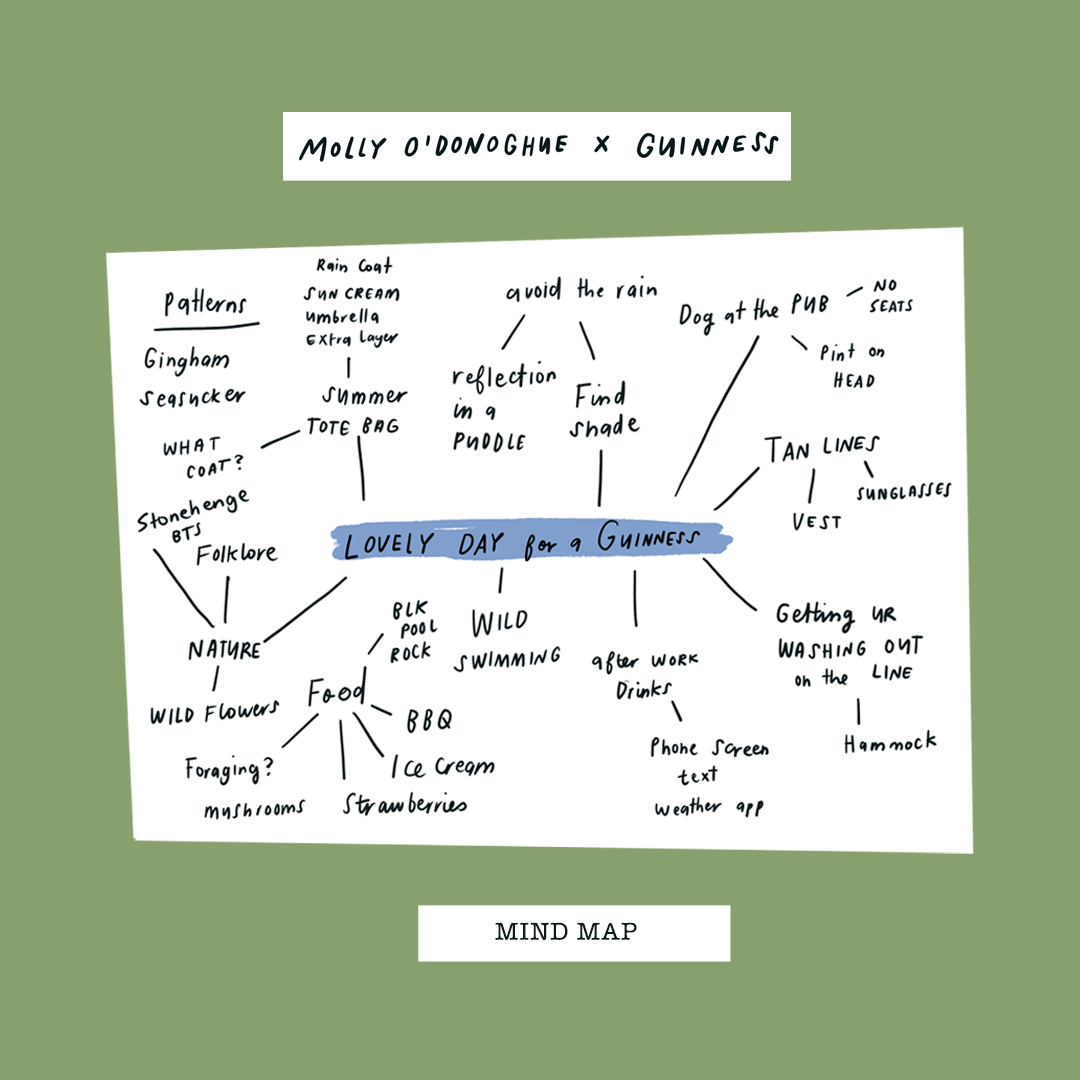 MOLLY O'DONOGHUE X GUINNESS
Patterns
Gingham
Seasucker
Rain Coat
SUN CREAM
umbrella
Extra layer
summer
TOTE BAG
WHAT
COAT?
avoid the rain
reflection
in a
PUDDLE
Find
shade
Dog at the PUB
NO
SEATS
Pint on
HEAD
TAN LINES
SUNGLASSES
VEST
LOVELY DAY for a GUINNESS
Stonehenge
BTS
Folklore
NATURE
WILD Flowers
BLK
POOL
ROCK
Food
BBQ
Ice Cream
Strawberries
Foraging?
mushrooms
WILD
SWIMMING
after WORK
Drinks
Phone Screen
text
weather app
Getting UR
WASHING OUT
on the LINE
Hammock
MIND MAP